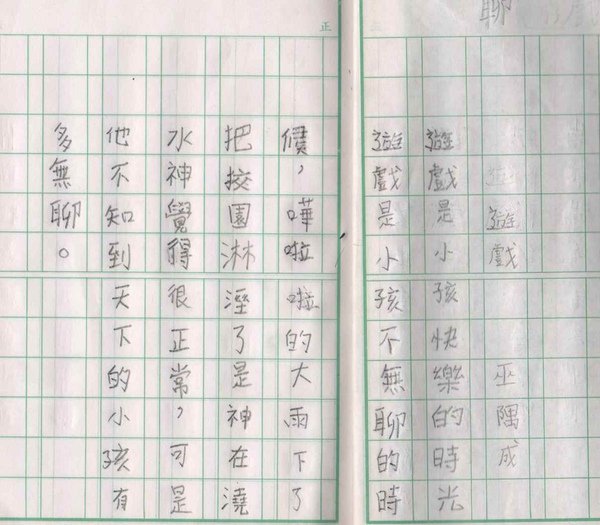 聊
遊戲 巫隅成
遊戲是小孩快樂的時光
遊戲是小孩不無聊的時
正
價，嘩啦啦的大雨下了
把挍園淋溼了是神在澆
水神覺得很正常，可是
他不知到天下的小孩有
多無聊。